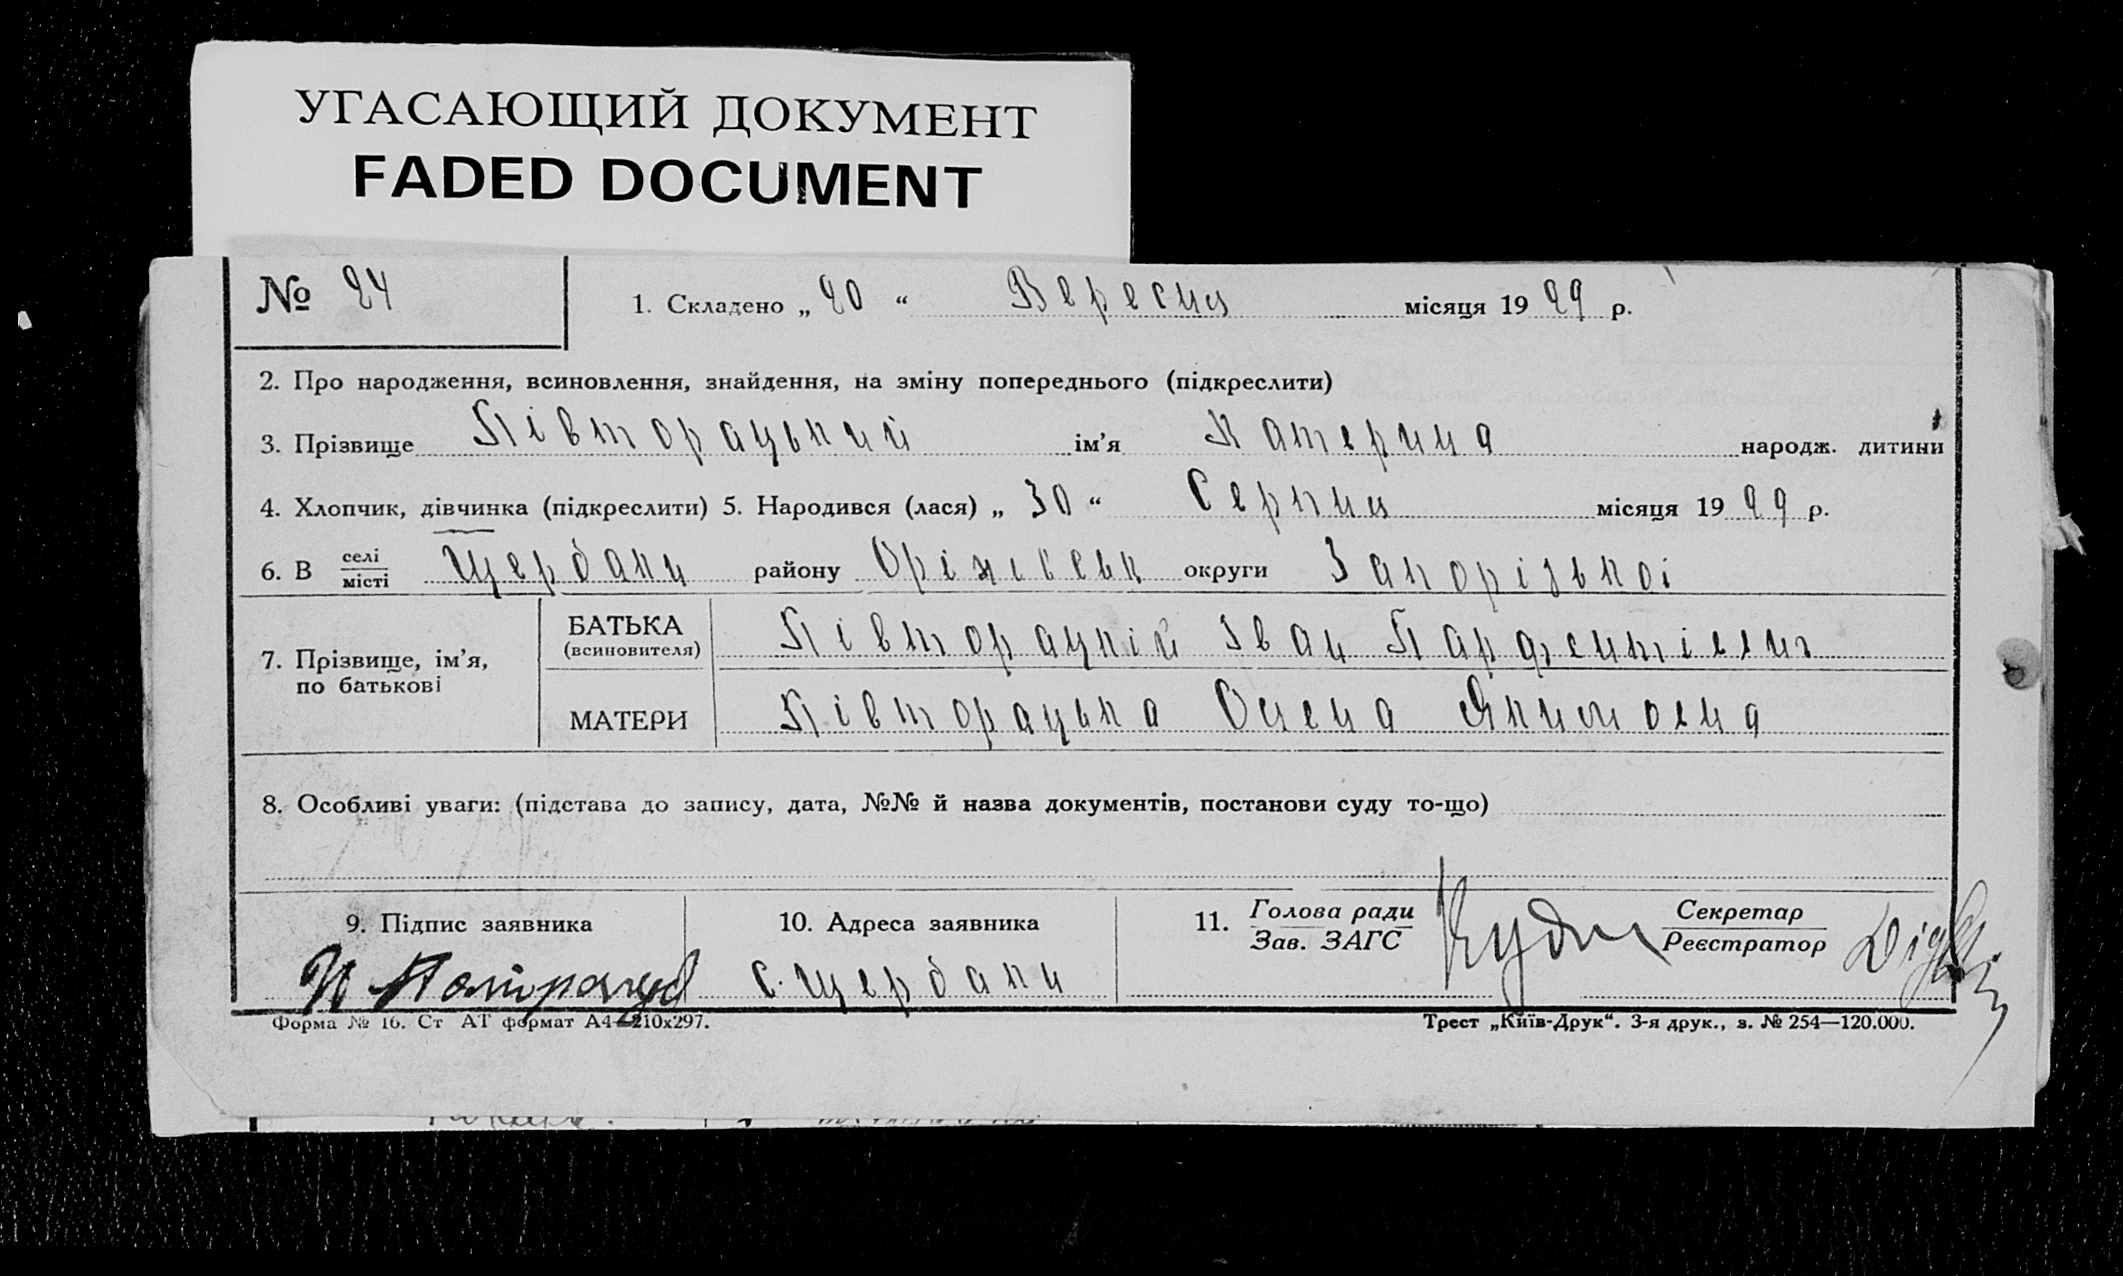 УГАСАЮЩИЙ ДОКУМЕНТ
FADED DOCUMENT
№ 24
1. Складено „ 20 “ Вересня місяця 1929 р.
2. Про народження, всиновлення, знайдення, на зміну попереднього (підкреслити)
3. Прізвище Півторацький ім’я Катерина народж. дитини
4. Хлопчик, дівчинка (підкреслити) 5. Народився (лася) „ 30 “ Серпня місяця 1929 р.
6. В селі/місті Щербаки району Оріхівськ округи Запорізької
7. Прізвище, ім’я, по батькові
БАТЬКА (всиновителя) Півторацкій Іван Парфентієвич
МАТЕРИ Півторацька Олена Якимовна
8. Особливі уваги: (підстава до запису, дата, №№ й назва документів, постанови суду то-що)
9. Підпис заявника
10. Адреса заявника
11. Голова ради / Зав. ЗАГС
Секретар / Реєстратор
с. Щербаки
Форма № 16. Ст АТ формат А4—210х297.
Трест „Київ-Друк“. 3-я друк., з. № 254—120.000.